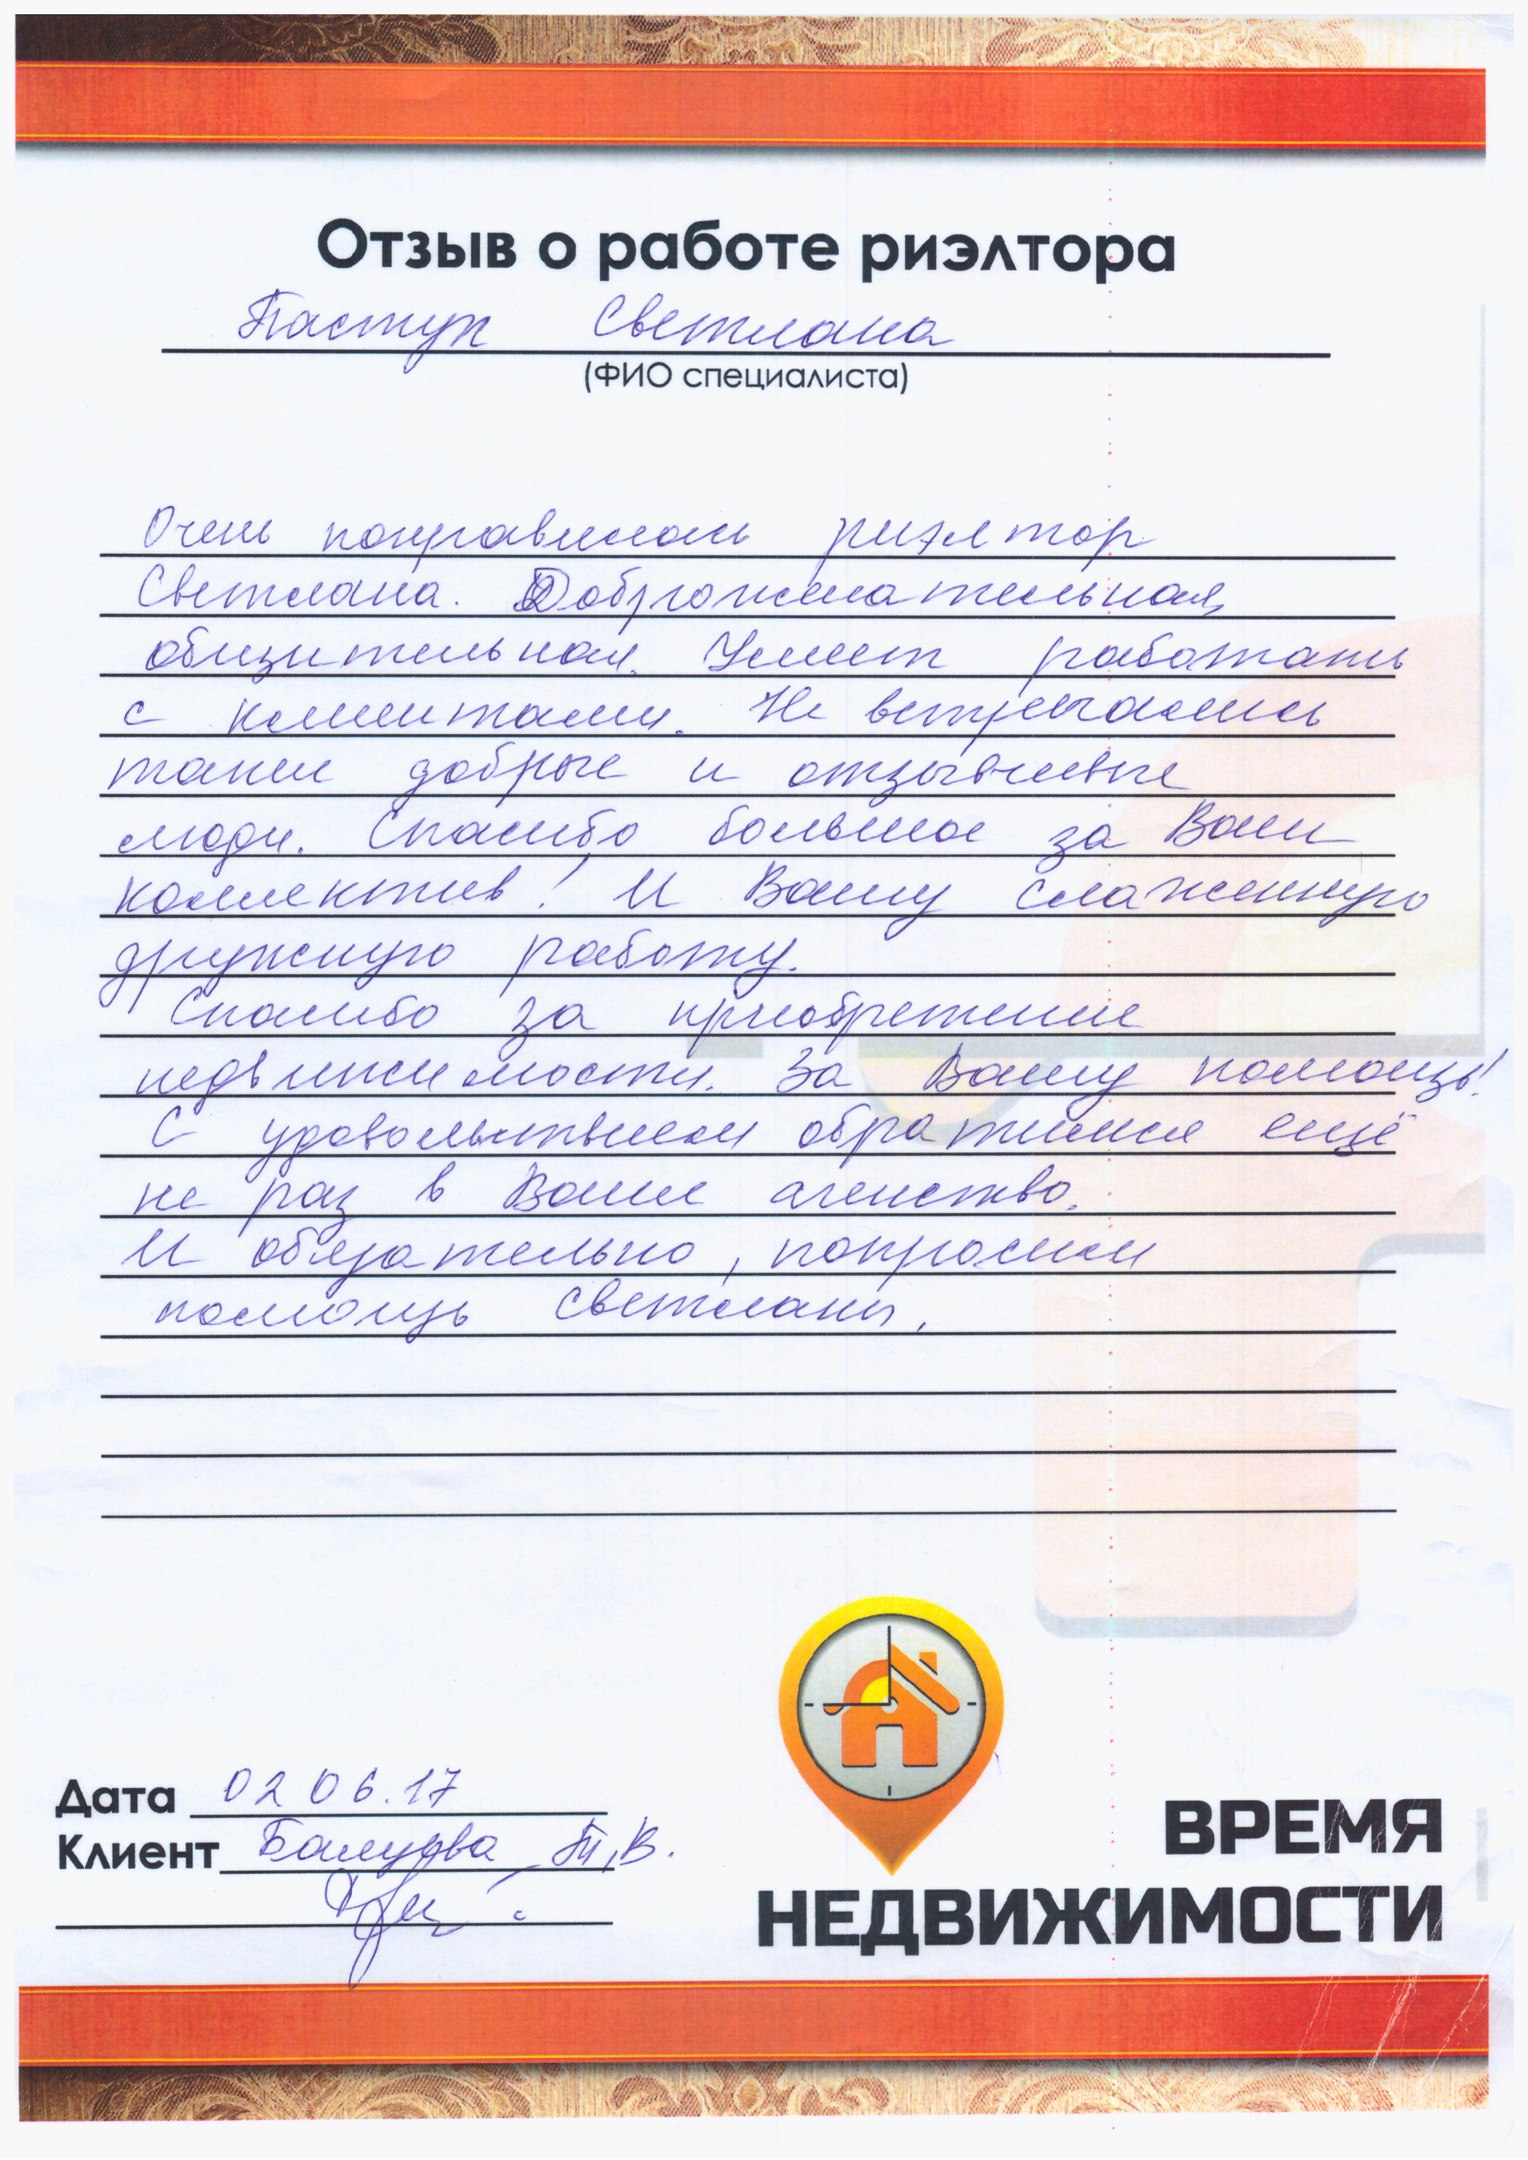 Отзыв о работе риэлтора
Пастух Светлана
(ФИО специалиста)
Очень понравилась риэлтор
Светлана. Доброжелательная,
общительная. Умеет работать
с клиентами. Не встречались
такие добрые и отзывчивые
люди. Спасибо большое за Ваш
коллектив! И Вашу слаженную
дружную работу.
Спасибо за приобретение
недвижимости. За Вашу помощь!
С удовольствием обратимся ещё
не раз в Ваше агенство.
И обязательно, попросим
помощь Светланы.
Дата 02 06.17
Клиент Балуева Т.В.
ВРЕМЯ
НЕДВИЖИМОСТИ